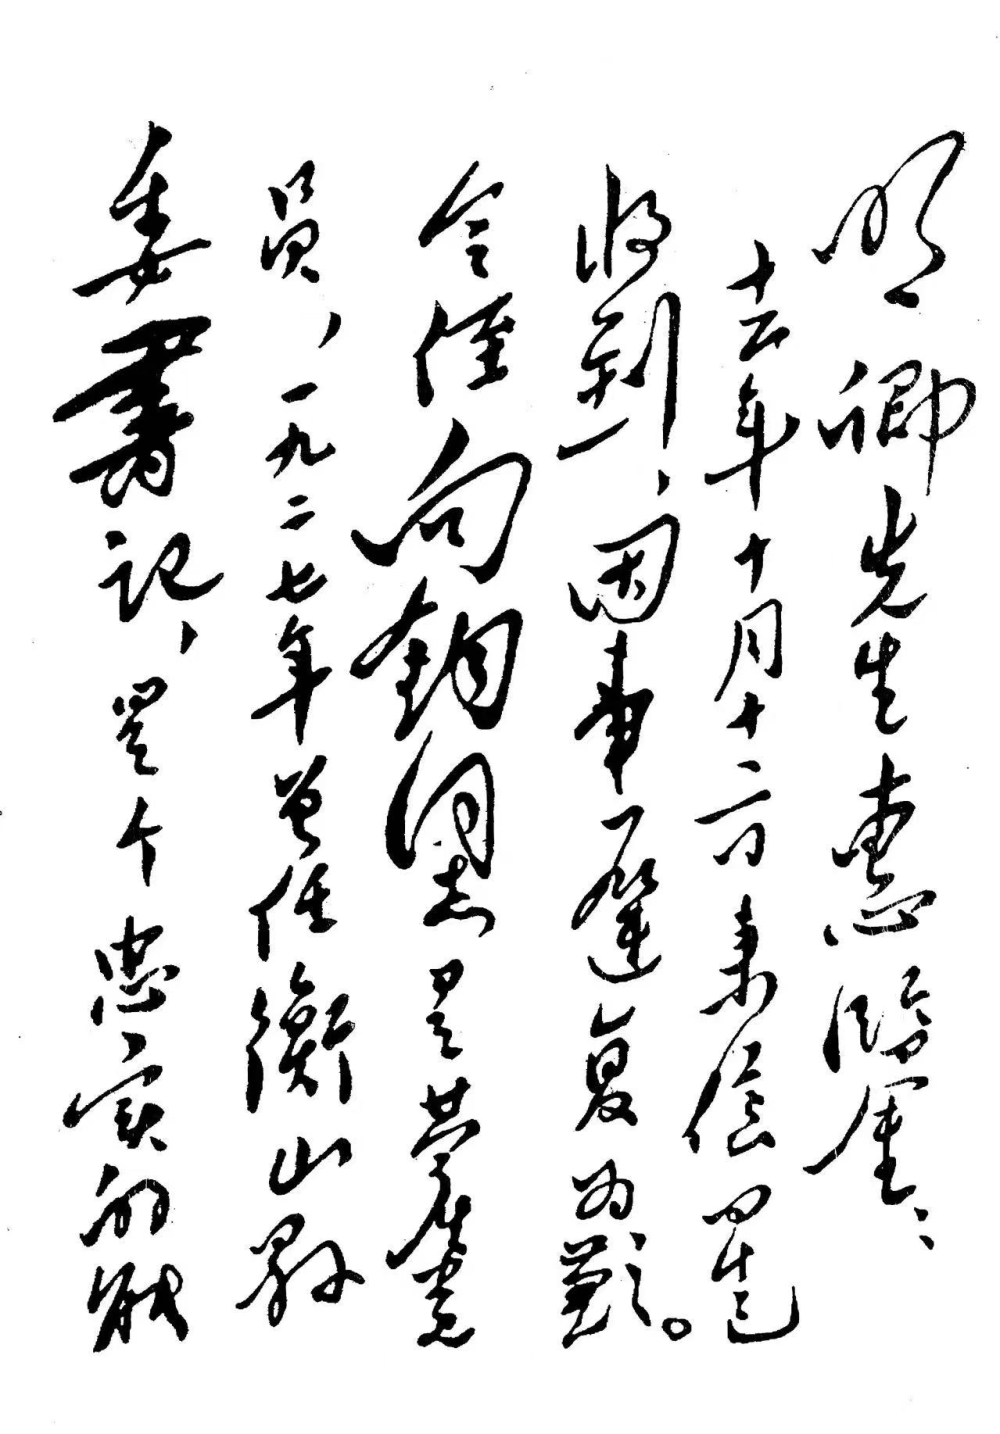 明卿先生惠临𨤲:
去年十月十六日来信早已
收到,因事迟复为歉。
令侄向钧同志是共产党
员,一九二七年曾任衡山县
委书记,是个忠实的能